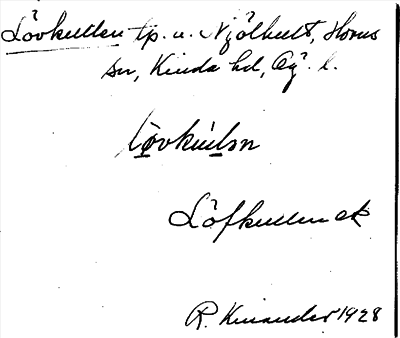 Lövkullen tp. u. Mjölhult, Horns
sn, Kinda hd, Ög. l.
Lövkullən
Löfkullen ek
R. Kinander 1928